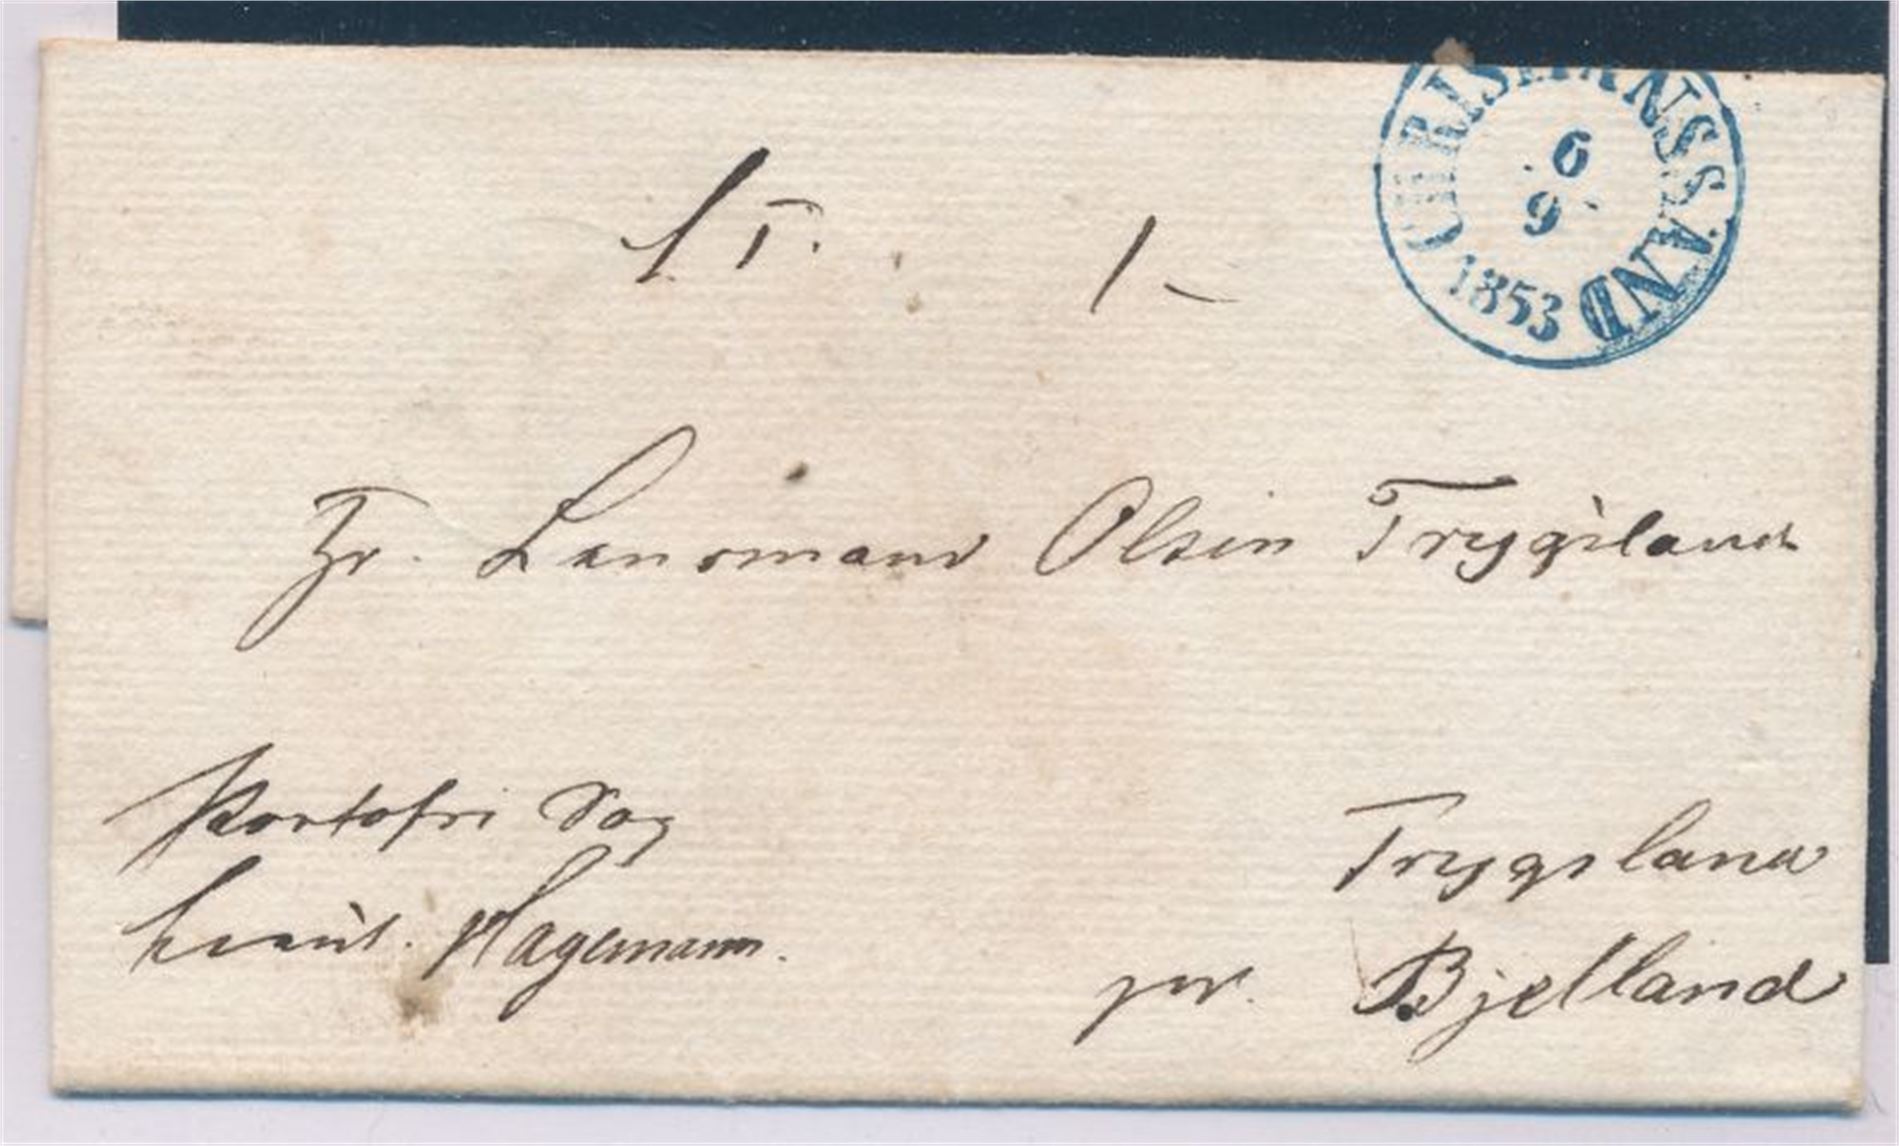 CHRISTIANSSAND
6
9
1853
1 -
Hr. Lensmand Olsen Trygsland
Portofri Sag
Hagemann.
Trygsland
pr. Bjelland